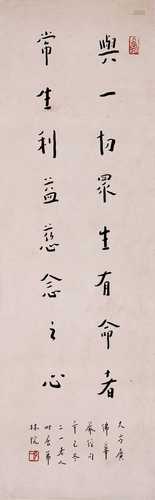 與一切眾生有命者
常生利益慈念之心
大方廣
佛華
嚴經句
辛巳冬
二一老人
時居
林院